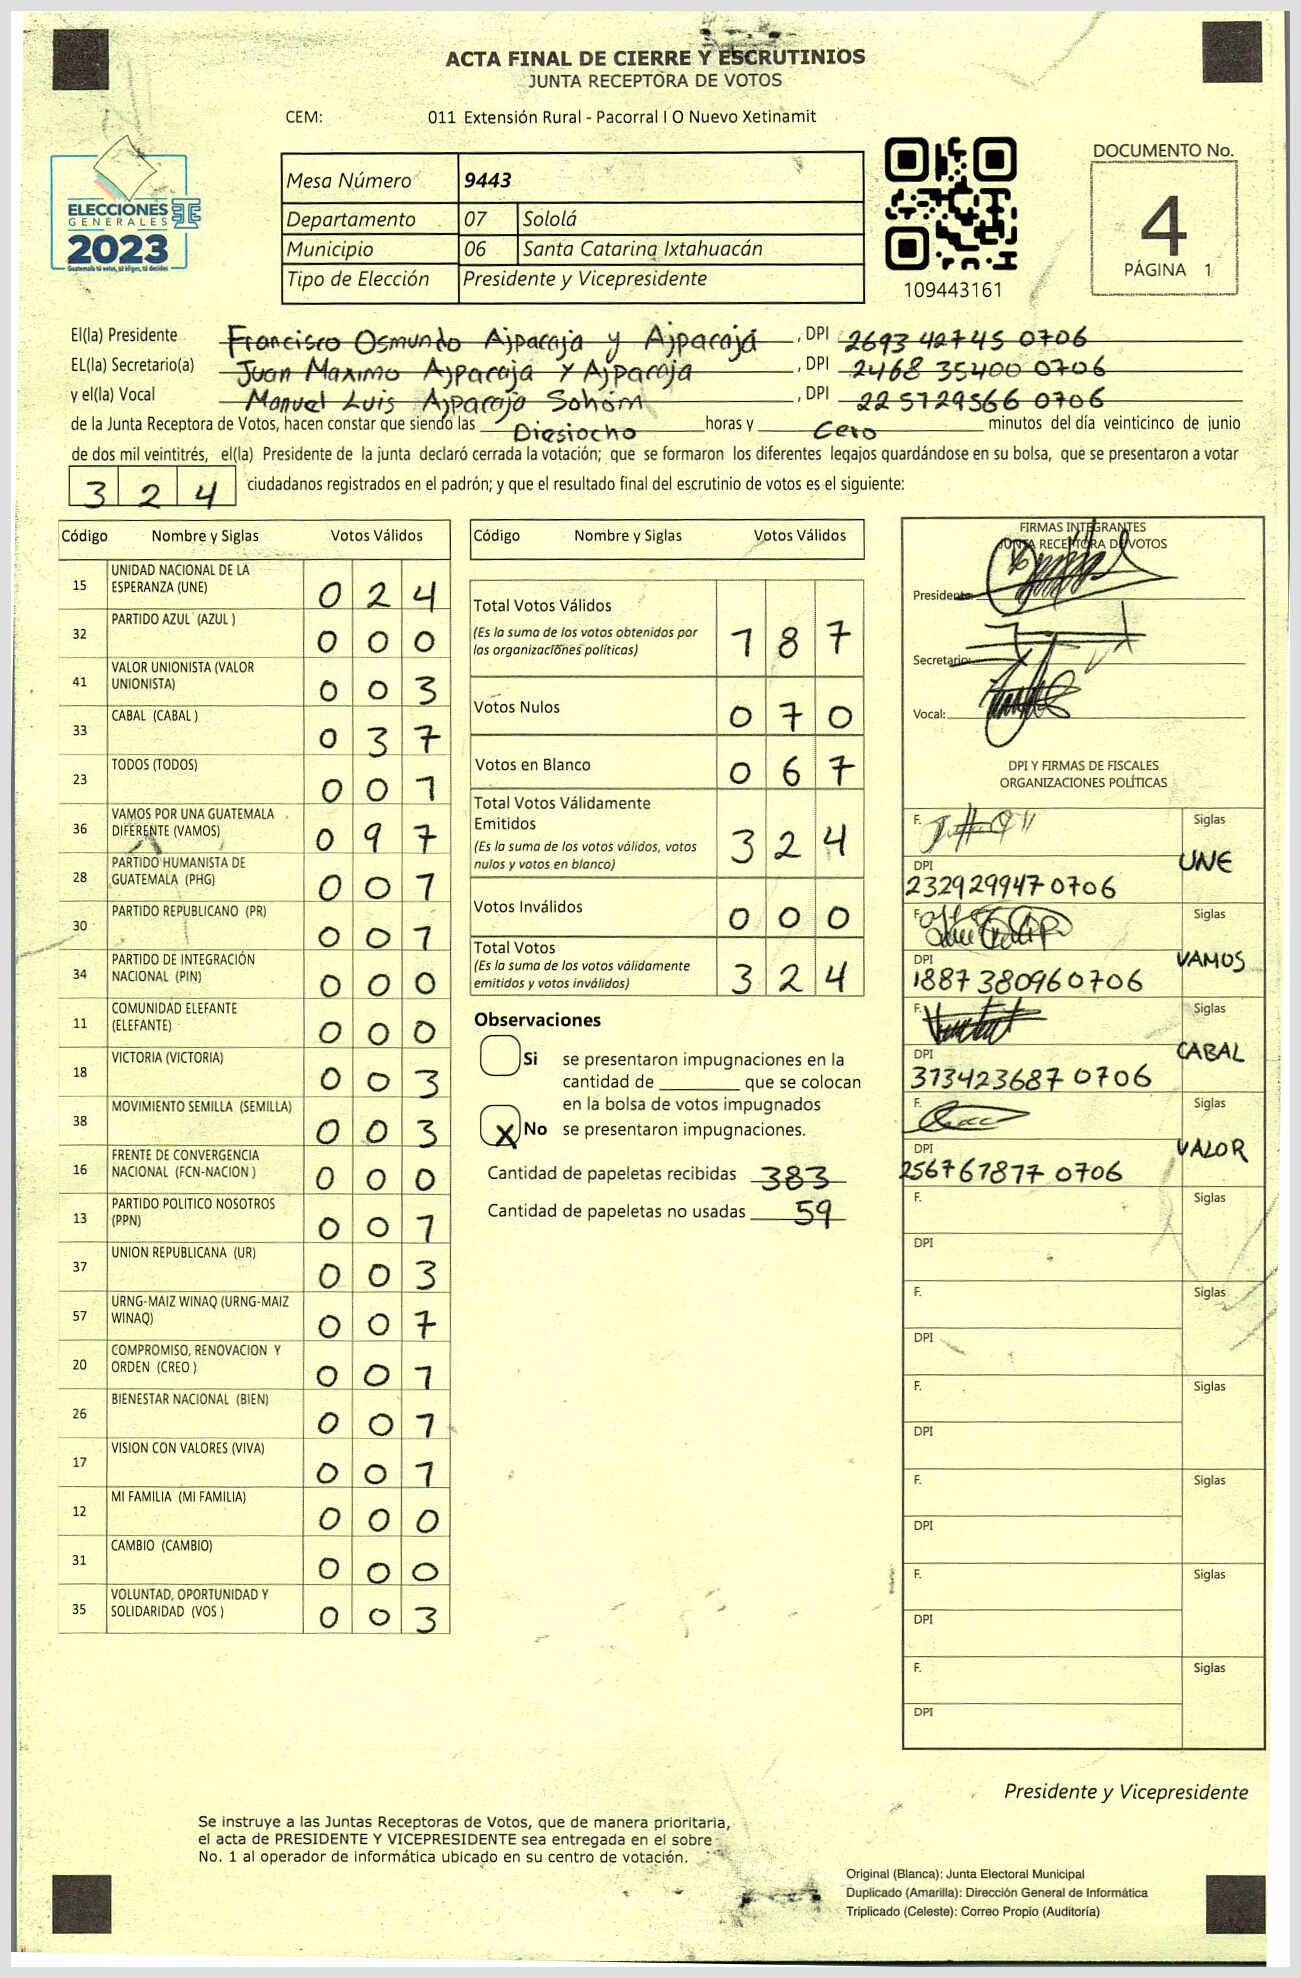 ACTA FINAL DE CIERRE Y ESCRUTINIOS
JUNTA RECEPTORA DE VOTOS
CEM: 011 Extensión Rural - Pacorral I O Nuevo Xetinamit
ELECCIONES
GENERALES
2023
Guatemala tú votas, tú eliges, tú decides
Mesa Número 9443
Departamento 07 Sololá
Municipio 06 Santa Catarina Ixtahuacán
Tipo de Elección Presidente y Vicepresidente
109443161
DOCUMENTO No.
4
PÁGINA 1
El(la) Presidente Francisco Osmundo Ajpacajá y Ajpacajá, DPI 2693 42745 0706
EL(la) Secretario(a) Juan Maximo Ajpacaja y Ajpacaja, DPI 2468 35400 0706
y el(la) Vocal Manuel Luis Ajpacaja Sohóm, DPI 225729566 0706
de la Junta Receptora de Votos, hacen constar que siendo las Diesiocho horas y Cero minutos del día veinticinco de junio
de dos mil veintitrés, el(la) Presidente de la junta declaró cerrada la votación; que se formaron los diferentes legajos guardándose en su bolsa, que se presentaron a votar
324 ciudadanos registrados en el padrón; y que el resultado final del escrutinio de votos es el siguiente:
Código Nombre y Siglas Votos Válidos
15 UNIDAD NACIONAL DE LA ESPERANZA (UNE) 024
32 PARTIDO AZUL (AZUL ) 000
41 VALOR UNIONISTA (VALOR UNIONISTA) 003
33 CABAL (CABAL ) 037
23 TODOS (TODOS) 001
36 VAMOS POR UNA GUATEMALA DIFERENTE (VAMOS) 097
28 PARTIDO HUMANISTA DE GUATEMALA (PHG) 001
30 PARTIDO REPUBLICANO (PR) 001
34 PARTIDO DE INTEGRACIÓN NACIONAL (PIN) 000
11 COMUNIDAD ELEFANTE (ELEFANTE) 000
18 VICTORIA (VICTORIA) 003
38 MOVIMIENTO SEMILLA (SEMILLA) 003
16 FRENTE DE CONVERGENCIA NACIONAL (FCN-NACION ) 000
13 PARTIDO POLITICO NOSOTROS (PPN) 001
37 UNION REPUBLICANA (UR) 003
57 URNG-MAIZ WINAQ (URNG-MAIZ WINAQ) 007
20 COMPROMISO, RENOVACION Y ORDEN (CREO ) 001
26 BIENESTAR NACIONAL (BIEN) 001
17 VISION CON VALORES (VIVA) 001
12 MI FAMILIA (MI FAMILIA) 000
31 CAMBIO (CAMBIO) 000
35 VOLUNTAD, OPORTUNIDAD Y SOLIDARIDAD (VOS ) 003
Código Nombre y Siglas Votos Válidos
Total Votos Válidos 187
(Es la suma de los votos obtenidos por
las organizaciones políticas)
Votos Nulos 070
Votos en Blanco 067
Total Votos Válidamente
Emitidos 324
(Es la suma de los votos válidos, votos
nulos y votos en blanco)
Votos Inválidos 000
Total Votos 324
(Es la suma de los votos válidamente
emitidos y votos inválidos)
Observaciones
Si se presentaron impugnaciones en la
cantidad de ________ que se colocan
en la bolsa de votos impugnados
X No se presentaron impugnaciones.
Cantidad de papeletas recibidas 383
Cantidad de papeletas no usadas 59
FIRMAS INTEGRANTES
JUNTA RECEPTORA DE VOTOS
Presidente:
Secretario:
Vocal:
DPI Y FIRMAS DE FISCALES
ORGANIZACIONES POLÍTICAS
F. Siglas
UNE
DPI
232929947 0706
F. Siglas
VAMOS
DPI
1887 38096 0706
F. Siglas
CABAL
DPI
313423687 0706
F. Siglas
VALOR
DPI
256761877 0706
F. Siglas
DPI
F. Siglas
DPI
F. Siglas
DPI
F. Siglas
DPI
F. Siglas
DPI
F. Siglas
DPI
Presidente y Vicepresidente
Se instruye a las Juntas Receptoras de Votos, que de manera prioritaria,
el acta de PRESIDENTE Y VICEPRESIDENTE sea entregada en el sobre
No. 1 al operador de informática ubicado en su centro de votación.
Original (Blanca): Junta Electoral Municipal
Duplicado (Amarilla): Dirección General de Informática
Triplicado (Celeste): Correo Propio (Auditoría)